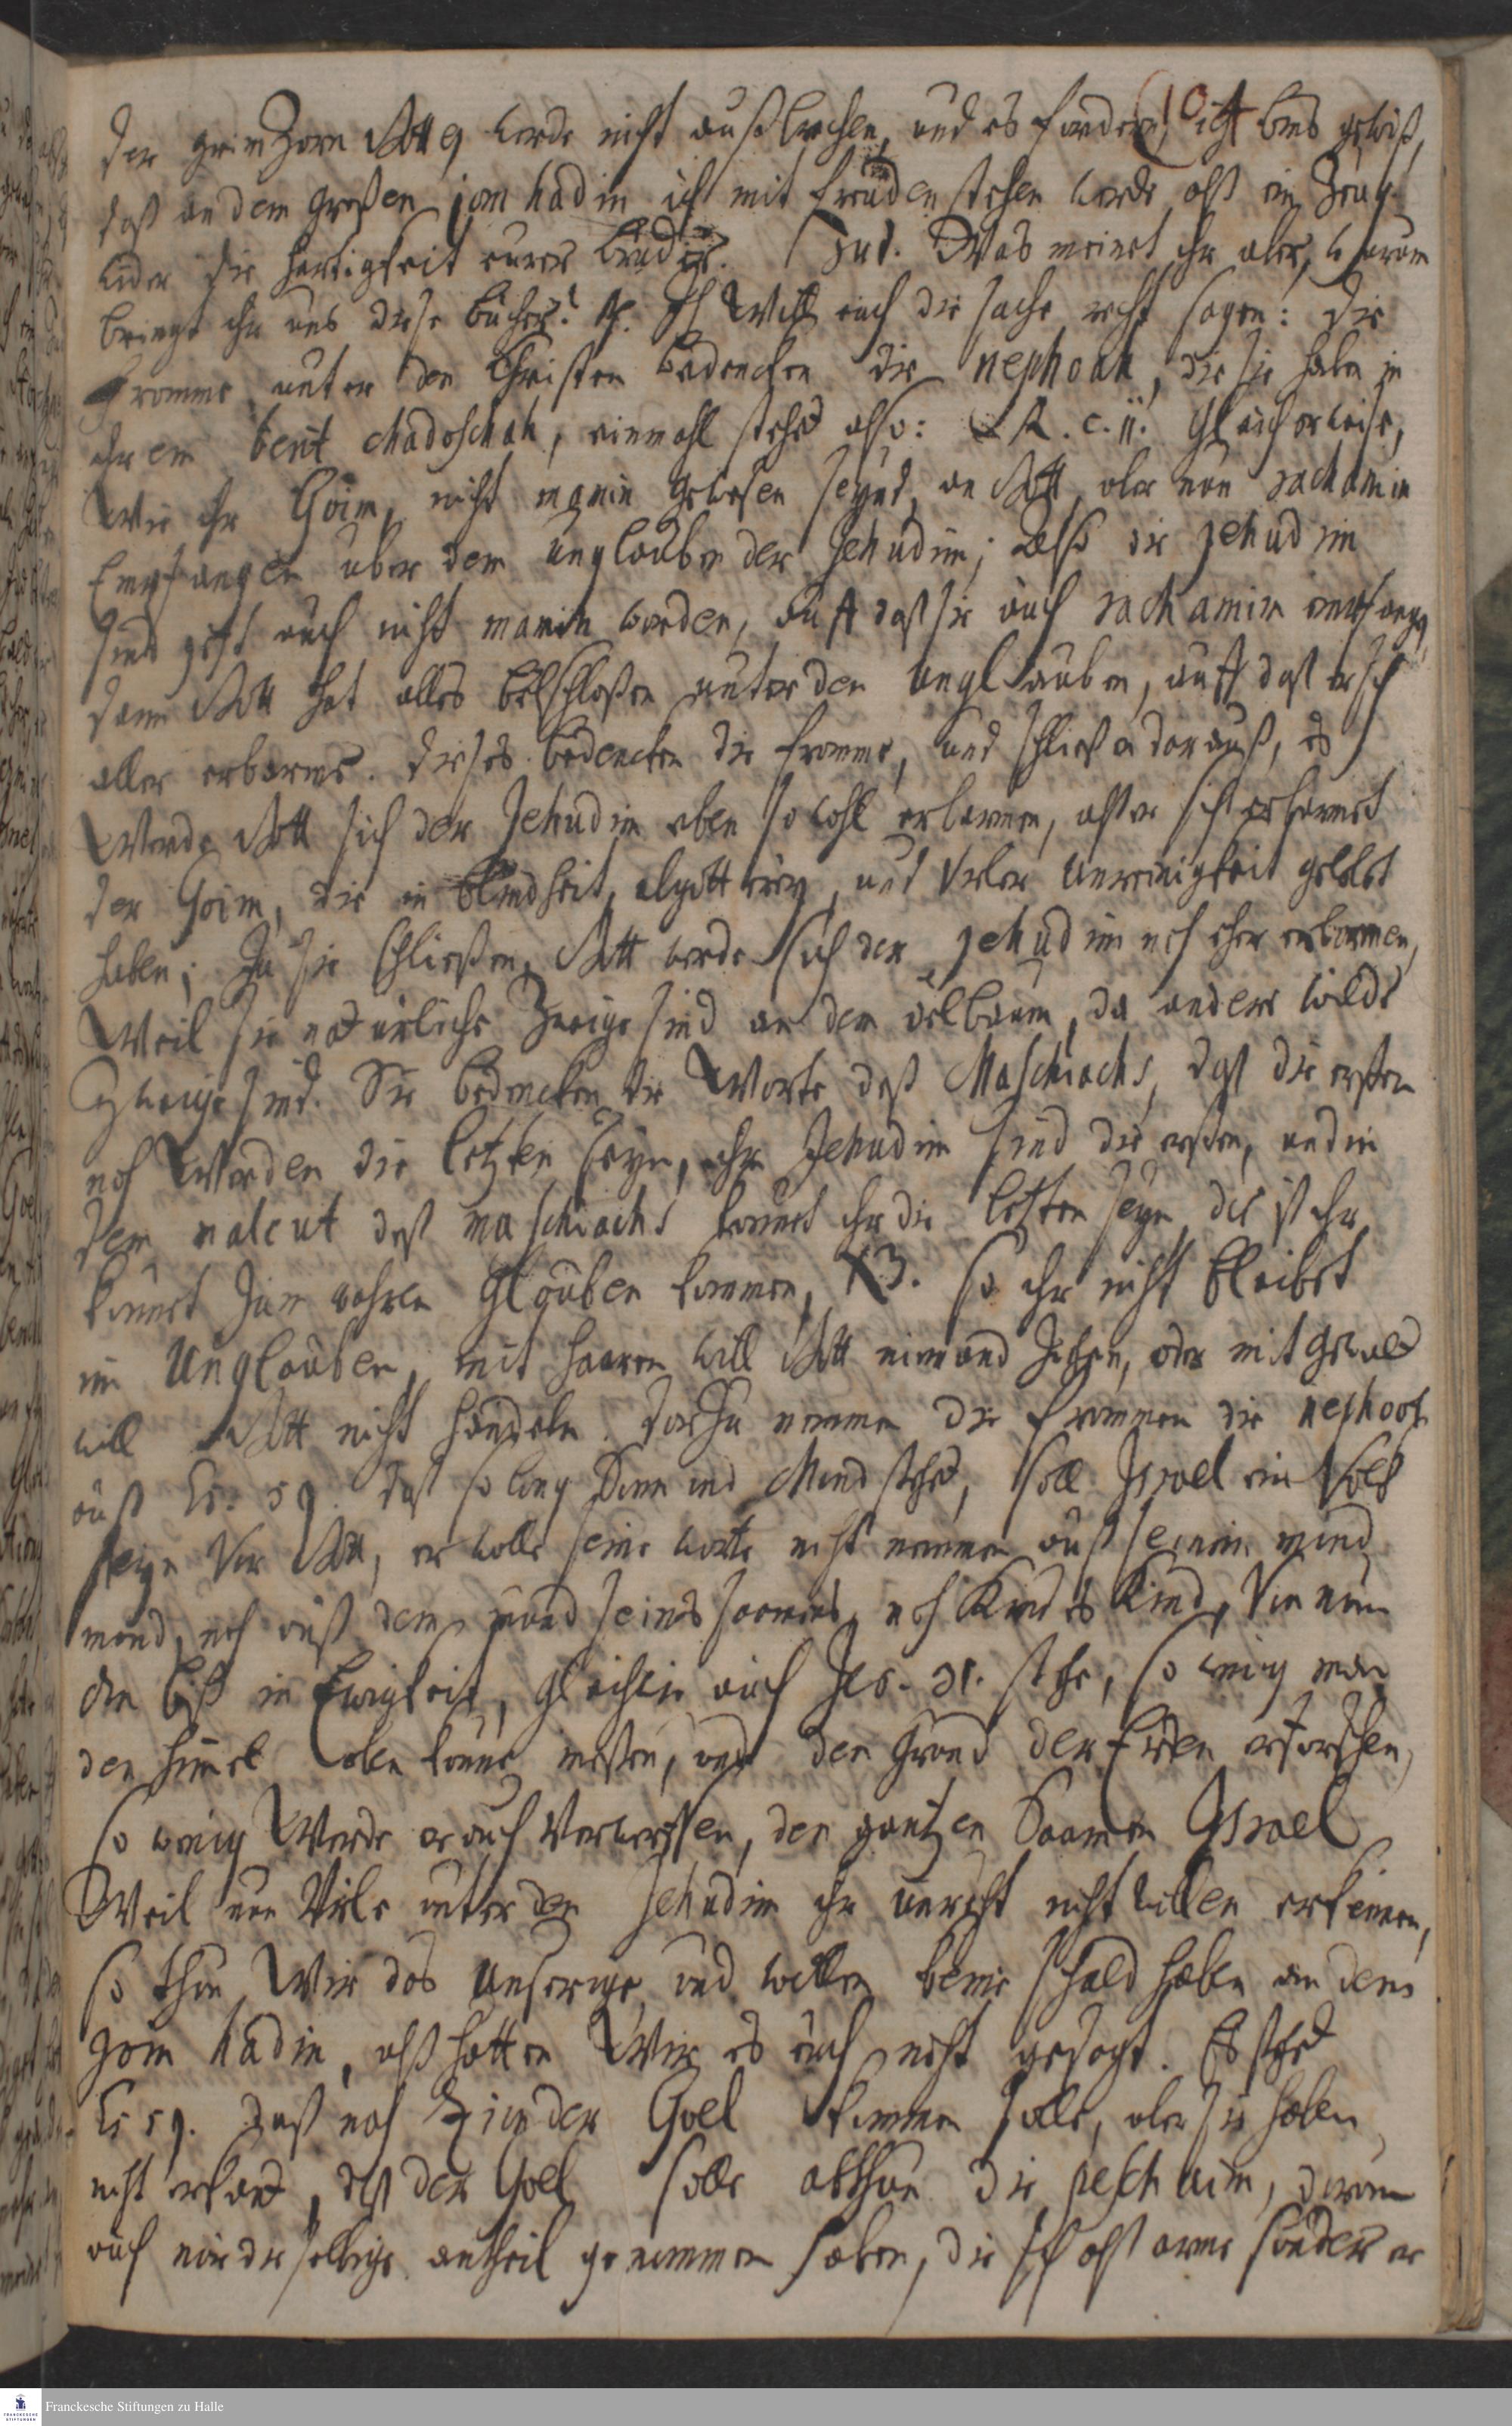 der grim Zorn Gottes werde nicht außbrechen, und es fordern; ich bins gewiß,
daß an dem großen jom hadin ich mit freuden stehen werde alß ein Zeug
wider die hertigkeit eures
bringt ihr uns diese bücher? R. Ich Will euch die sache recht sagen: die
fromme unter den Christen bedencken die nephoah, die sie haben in
ihrem berit chadoschah, einmahl stehet also: R. c. 11. Gleicherweise,
Wie ihr Goim, nicht mamin gewesen seynd, an Gott, aber nun rachamim
Empfangen uber dem unglauben der Jehudim; also die Jehudim
sind jetzt auch nicht mamin worden, auff daß sie auch rachamim empfangen,
dann Gott hat alles beschloßen unter den unglauben, auff daß er sich
aller erbarme. dieses bedencken die fromme, und schließen darauß, es
Werde Gott sich der Jehudim eben so wohl erbarmen, alß er sich erbarmet
der Goim, die in blindheit, abgötterey, und vieler unreinigkeit gelebet
haben; Ja sie schließen, Gott werde sich der Jehudim noch eher erbarmen,
Weil sie naturliche Zweige sind an dem oelbaum, da andere wilde
Zweige sind. Sie bedencken die Worte deß Maschiachs, daß die ersten
noch Werden die letzten seyn, ihr Jehudim sind die ersten, und in
dem malcut deß maschiachs konnet ihr die letzten seyn, das ist ihr
konnet zum wahren Glauben kommen, so ihr nicht bleibet
im Unglauben, mit haaren will Gott niemand ziehen, oder mit gewald
will Gott nicht handeln. darzu nemmen die frommen die nephoot
auß Es. 59. daß so lang Sonn und Mond stehet, soll Israel ein Volk
seyn vor Gott, er wolle seine worte nicht nemmen auß seinem mund
mund, noch auß dem mund seines saamens, noch Kindes Kind, von nun
an biß in Ewigkeit, gleichwie auch Jer. 31. stehe, so wenig man
den himel oben konne meßen, und den Grund der Erden erforschen,
so wenig Werde er auch Verwerffen, den gantzen Saamen Israel
Weil nun Viele unter den Jehudim ihr unrecht nicht wollen erkennen,
so thun Wir das unserige und wollen keine schuld haben an dem
Jom hadin, alß hatten Wir es euch nicht gesagt. Es stehet
Es 59. daß nach Zion der Goel kommen solle, aber sie haben
nicht erkant, daß der Goel solle abthun die peschaim, darum
auch nur dieselbige antheil genommen haben, die sich alß arme sünder er